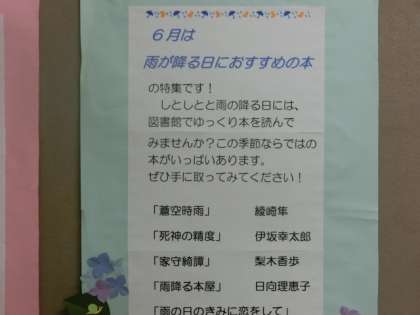 ６月は
雨が降る日におすすめの本
の特集です！
しとしとと雨の降る日には、
図書館でゆっくり本を読んで
みませんか？この季節ならではの
本がいっぱいあります。
ぜひ手に取ってみてください！
「蒼空時雨」 綾崎隼
「死神の精度」 伊坂幸太郎
「家守綺譚」 梨木香歩
「雨降る本屋」 日向理恵子
「雨の日のきみに恋をして」